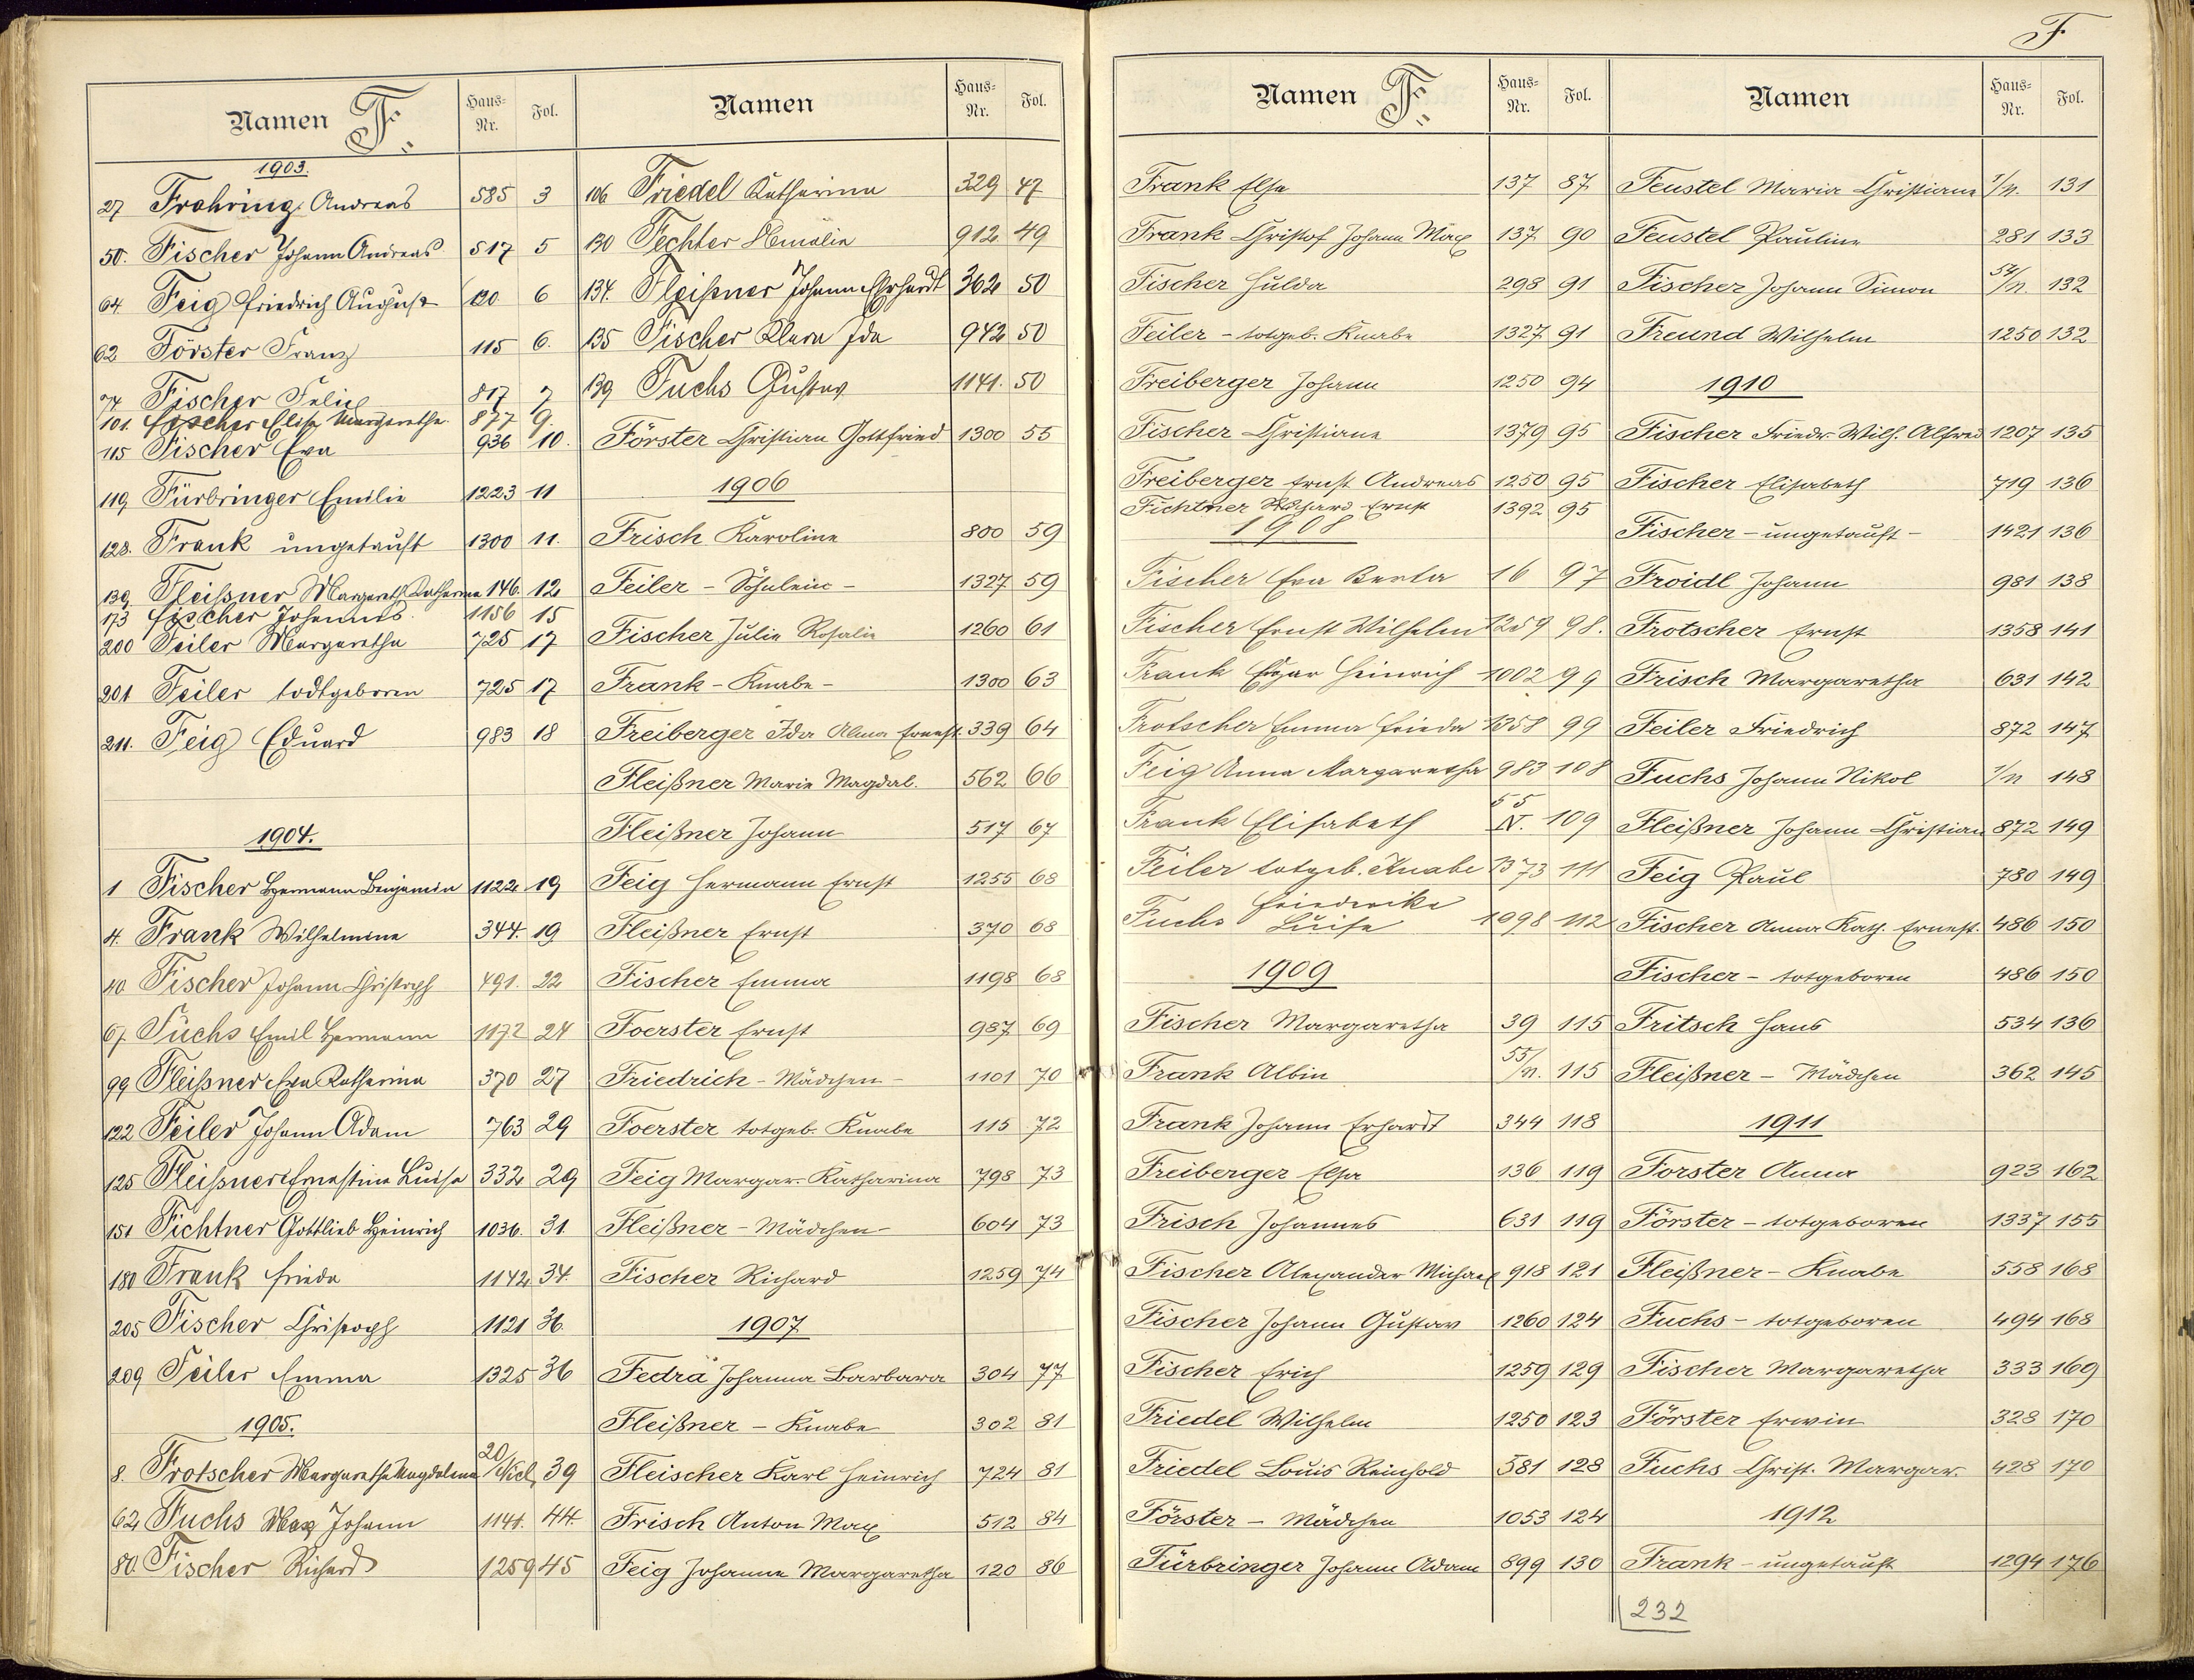 F.
Namen F. Haus-Nr. Fol.
1903.
27 Frohring Andreas 585 3
50. Fischer Johann Andreas 517 5
64 Feig Friedrich August 120 6
62 Förster Franz 115 6.
74 Fischer Felix 817 7
101. Fischer Elise Margarethe 877 9.
115 Fischer Eva 936 10.
119 Fürbringer Emilie 1223 11
128. Frank ungetauft 1300 11.
139. Fleißner Margareth Katharina 146. 12
173 Fischer Johannes 1156 15
200 Feiler Margaretha 725 17
201 Feiler todtgeboren 725 17
211. Feig Eduard 983 18
1904.
1 Fischer Hermann Benjamin 1122 19
4. Frank Wilhelmine 344. 19
40 Fischer Johann Christoph 491. 22
67. Fuchs Emil Hermann 1172 24
99 Fleißner Eva Katharina 370 27
122 Feiler Johann Adam 763 29
125 Fleißner Ernestine Luise 332 29
151 Fichtner Gottlieb Heinrich 1036. 31
180 Frank Frieda 1142 34.
205 Fischer Christoph 1121 36.
209 Feiler Emma 1325 36
1905.
8. Frotscher Margaretha Magdalena 20/Nicl. 39
62 Fuchs Max Johann 1141. 44.
80. Fischer Richard 1259 45
Namen Haus-Nr. Fol.
106 Friedel Katharina 329 47
130 Fechter 912 49
134. Fleißner Johann Ehrhardt 362 50
135 Fischer Klara Ida 942 50
139 Fuchs Gustav 1141. 50
Förster Christian Gottfried 1300 55
1906
Frisch Karoline 800 59
Feiler - Söhnlein - 1327 59
Fischer Julie Rosalie 1260 61
Frank - Knabe - 1300 63
Freiberger Ida Alma Ernest. 339 64
Fleißner Marie Magdal. 562 66
Fleißner Johann 517 67
Feig Hermann Ernst 1255 68
Fleißner Ernst 370 68
Fischer Emma 1198 68
Foerster Ernst 987 69
Friedrich - Mädchen - 1101 70
Foerster totgeb. Knabe 115 72
Feig Margar. Katharina 798 73
Fleißner - Mädchen - 604 73
Fischer Richard 1259 74
1907
Fedra Johanna Barbara 304 77
Fleißner - Knabe 302 81
Fleischer Karl Heinrich 724 81
Frisch Anton Max 512 84
Feig Johanne Margaretha 120 86
Namen F. Haus-Nr. Fol.
Frank Else 137 87
Frank Christof Johann Max 137 90
Fischer Hulda 298 91
Feiler - totgeb. Knabe 1327 91
Freiberger Johann 1250 94
Fischer Christiane 1379 95
Freiberger Ernst Andreas 1250 95
Fichtner Richard Ernst 1392 95
1908
Fischer Eva Berta 16 97
Fischer Ernst Wilhelm 1259 98.
Frank Edgar Heinrich 1002 99
Frotscher Emma Frieda 1358 99
Feig Anna Margaretha 983 108
Frank Elisabeth 55/N. 109
Feiler totgeb. Knabe 1373 111
Fuchs Friederike Luise 1098 112
1909
Fischer Margaretha 39 115
Frank Albin 55/n. 115
Frank Johann Erhardt 344 118
Freiberger Elsa 136 119
Frisch Johannes 631 119
Fischer Alexander Michael 918 121
Fischer Johann Gustav 1260 124
Fischer Erich 1259 129
Friedel Wilhelm 1250 123
Friedel Louis Reinhold 581 128
Förster - Mädchen 1053 124
Fürbringer Johann Adam 899 130
Namen Haus-Nr. Fol.
Feustel Maria Christiane 7/n. 131
Feustel Pauline 281 133
Fischer Johann Simon 54/n. 132
Freund Wilhelm 1250 132
1910
Fischer Friedr. Wilh. Alfred 1207 135
Fischer Elisabeth 719 136
Fischer - ungetauft - 1421 136
Froidl Johann 981 138
Frotscher Ernst 1358 141
Frisch Margaretha 631 142
Feiler Friedrich 872 147
Fuchs Johann Nikol 7/n 148
Fleißner Johann Christian 872 149
Feig Paul 780 149
Fischer Anna Kath. Ernest. 486 150
Fischer - totgeboren 486 150
Fritsch Hans 534 136
Fleißner - Mädchen 362 145
1911
Forster Anna 923 162
Förster - totgeboren 1337 155
Fleißner - Knabe 558 168
Fuchs - totgeboren 494 168
Fischer Margaretha 333 169
Förster Erwin 328 170
Fuchs Christ. Margar. 428 170
1912
Frank - ungetauft 1294 176
232